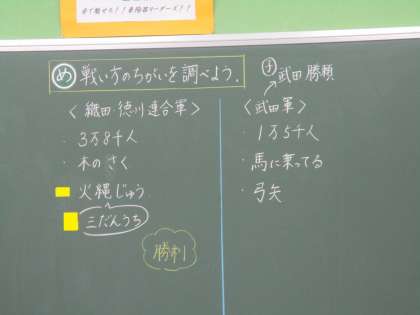 め 戦い方のちがいを調べよう。
〈織田 徳川連合軍〉
・3万8千人
・木のさく
火縄じゅう
三だんうち
勝利
武田 勝頼
〈武田軍〉
・1万5千人
・馬に乗ってる
・弓矢